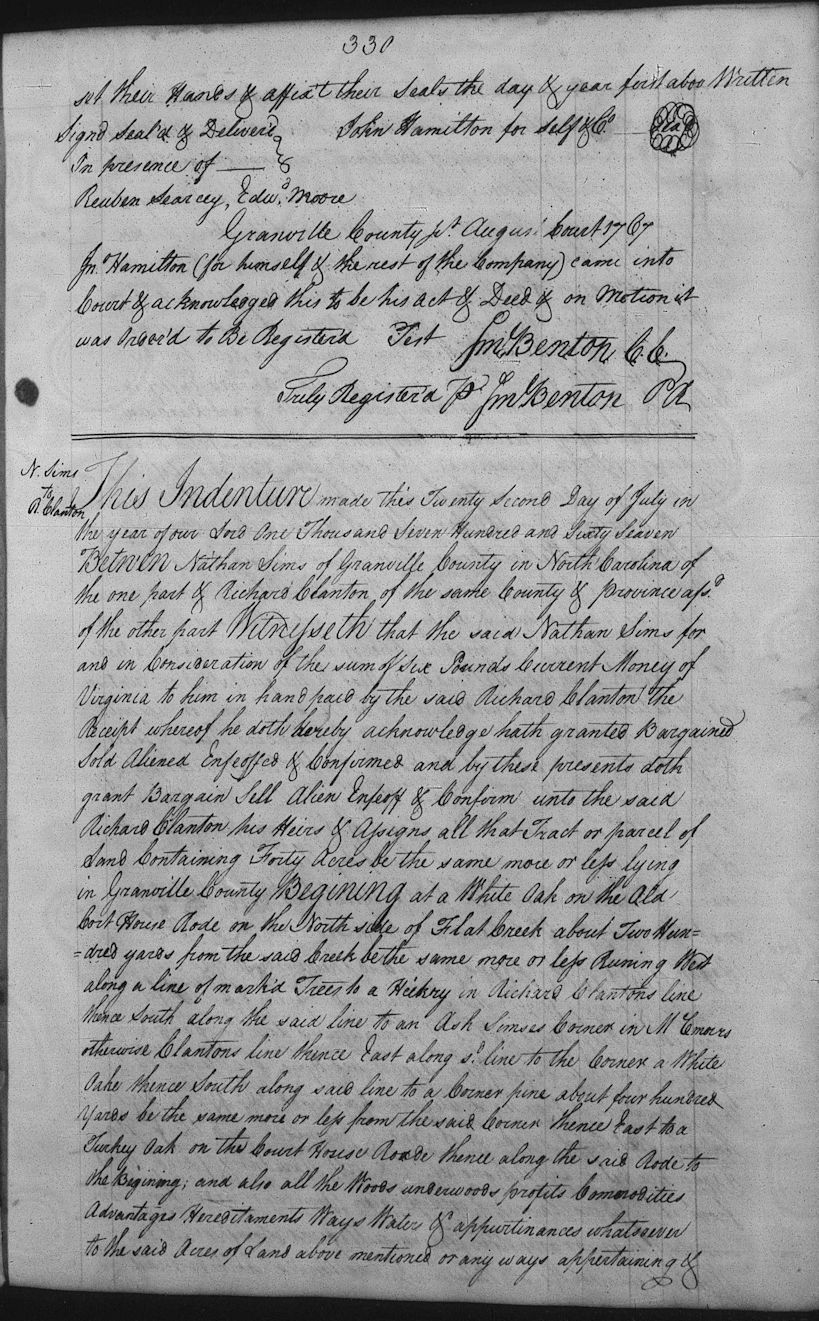 330
set their Hands & affixt their Seals the day & year first abov Written
Signd Seal'd & Deliverd John Hamilton for Self & Co. Seal
In presence of
Reuben Searcey, Edwd. Moore
Granville County pt. August Court 1767
Jno. Hamilton (for himself & the rest of the Company) came into
Court & acknowledged this to be his act & Deed & on Motion it
was Order'd to Be Register'd Test Sml Benton C C
Truly Register'd Pr Sml Benton P R
N. Sims
to
R. Clanton
This Indenture made this Twenty Second Day of July in
the year of our Lord One Thousand Seven Hundred and Sixty Seaven
Betwen Nathan Sims of Granville County in North Carolina of
the one part & Richard Clanton of the same County & province afsd.
of the other part Witnysseth that the said Nathan Sims for
and in Consideration of the sum of Six Pounds Current Money of
Virginia to him in hand paid by the said Richard Clanton the
Receipt whereof he doth hereby acknowledge hath granted Bargained
Sold Aliened Enfeoffed & Confirmed and by these presents doth
grant Bargain Sell Alien Enfeoff & Confirm unto the said
Richard Clanton his Heirs & Assigns all that Tract or parcel of
Land Containing Forty Acres be the same more or less lying
in Granville County Begining at a White Oak on the Old
Cort House Rode on the North side of Flat Creek about Two Hun=
=dred yards from the said Creek be the same more or less Runing West
along a line of markd Trees to a Hickry in Richard Clantons line
thence South along the said line to an Ash Simses Corner in
otherwise Clantons line thence East along sd. line to the Corner a White
Oake thence South along said line to a Corner pine about four hundred
Yards be the same more or less from the said Corner thence East to a
Turkey Oak on the Court House Roade thence along the said Rode to
the Bigining; and also all the Woods underwoods profits Commodities
Advantages Hereditaments Ways Waters & appurtinances whatsoever
to the said Acres of Land above mentioned or any ways appertaining &